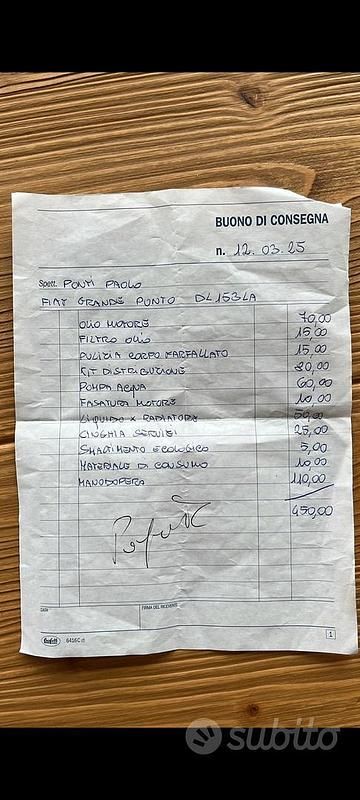 BUONO DI CONSEGNA
n. 12.03.25
Spett. PONTI PAOLO
FIAT GRANDE PUNTO DL153LA
OLIO MOTORE 70,00
FILTRO OLIO 15,00
PULIZIA CORPO FARFALLATO 15,00
KIT DISTRIBUZIONE 80,00
POMPA ACQUA 60,00
FASATURA MOTORE 10,00
LIQUIDO X RADIATORE 50,00
CINGHIA SERVIZI 25,00
SMALTIMENTO ECOLOGICO 5,00
MATERIALE DI CONSUMO 10,00
MANODOPERA 110,00
450,00
DATA FIRMA DEL RICEVENTE
Buffetti 6416C 1
subito